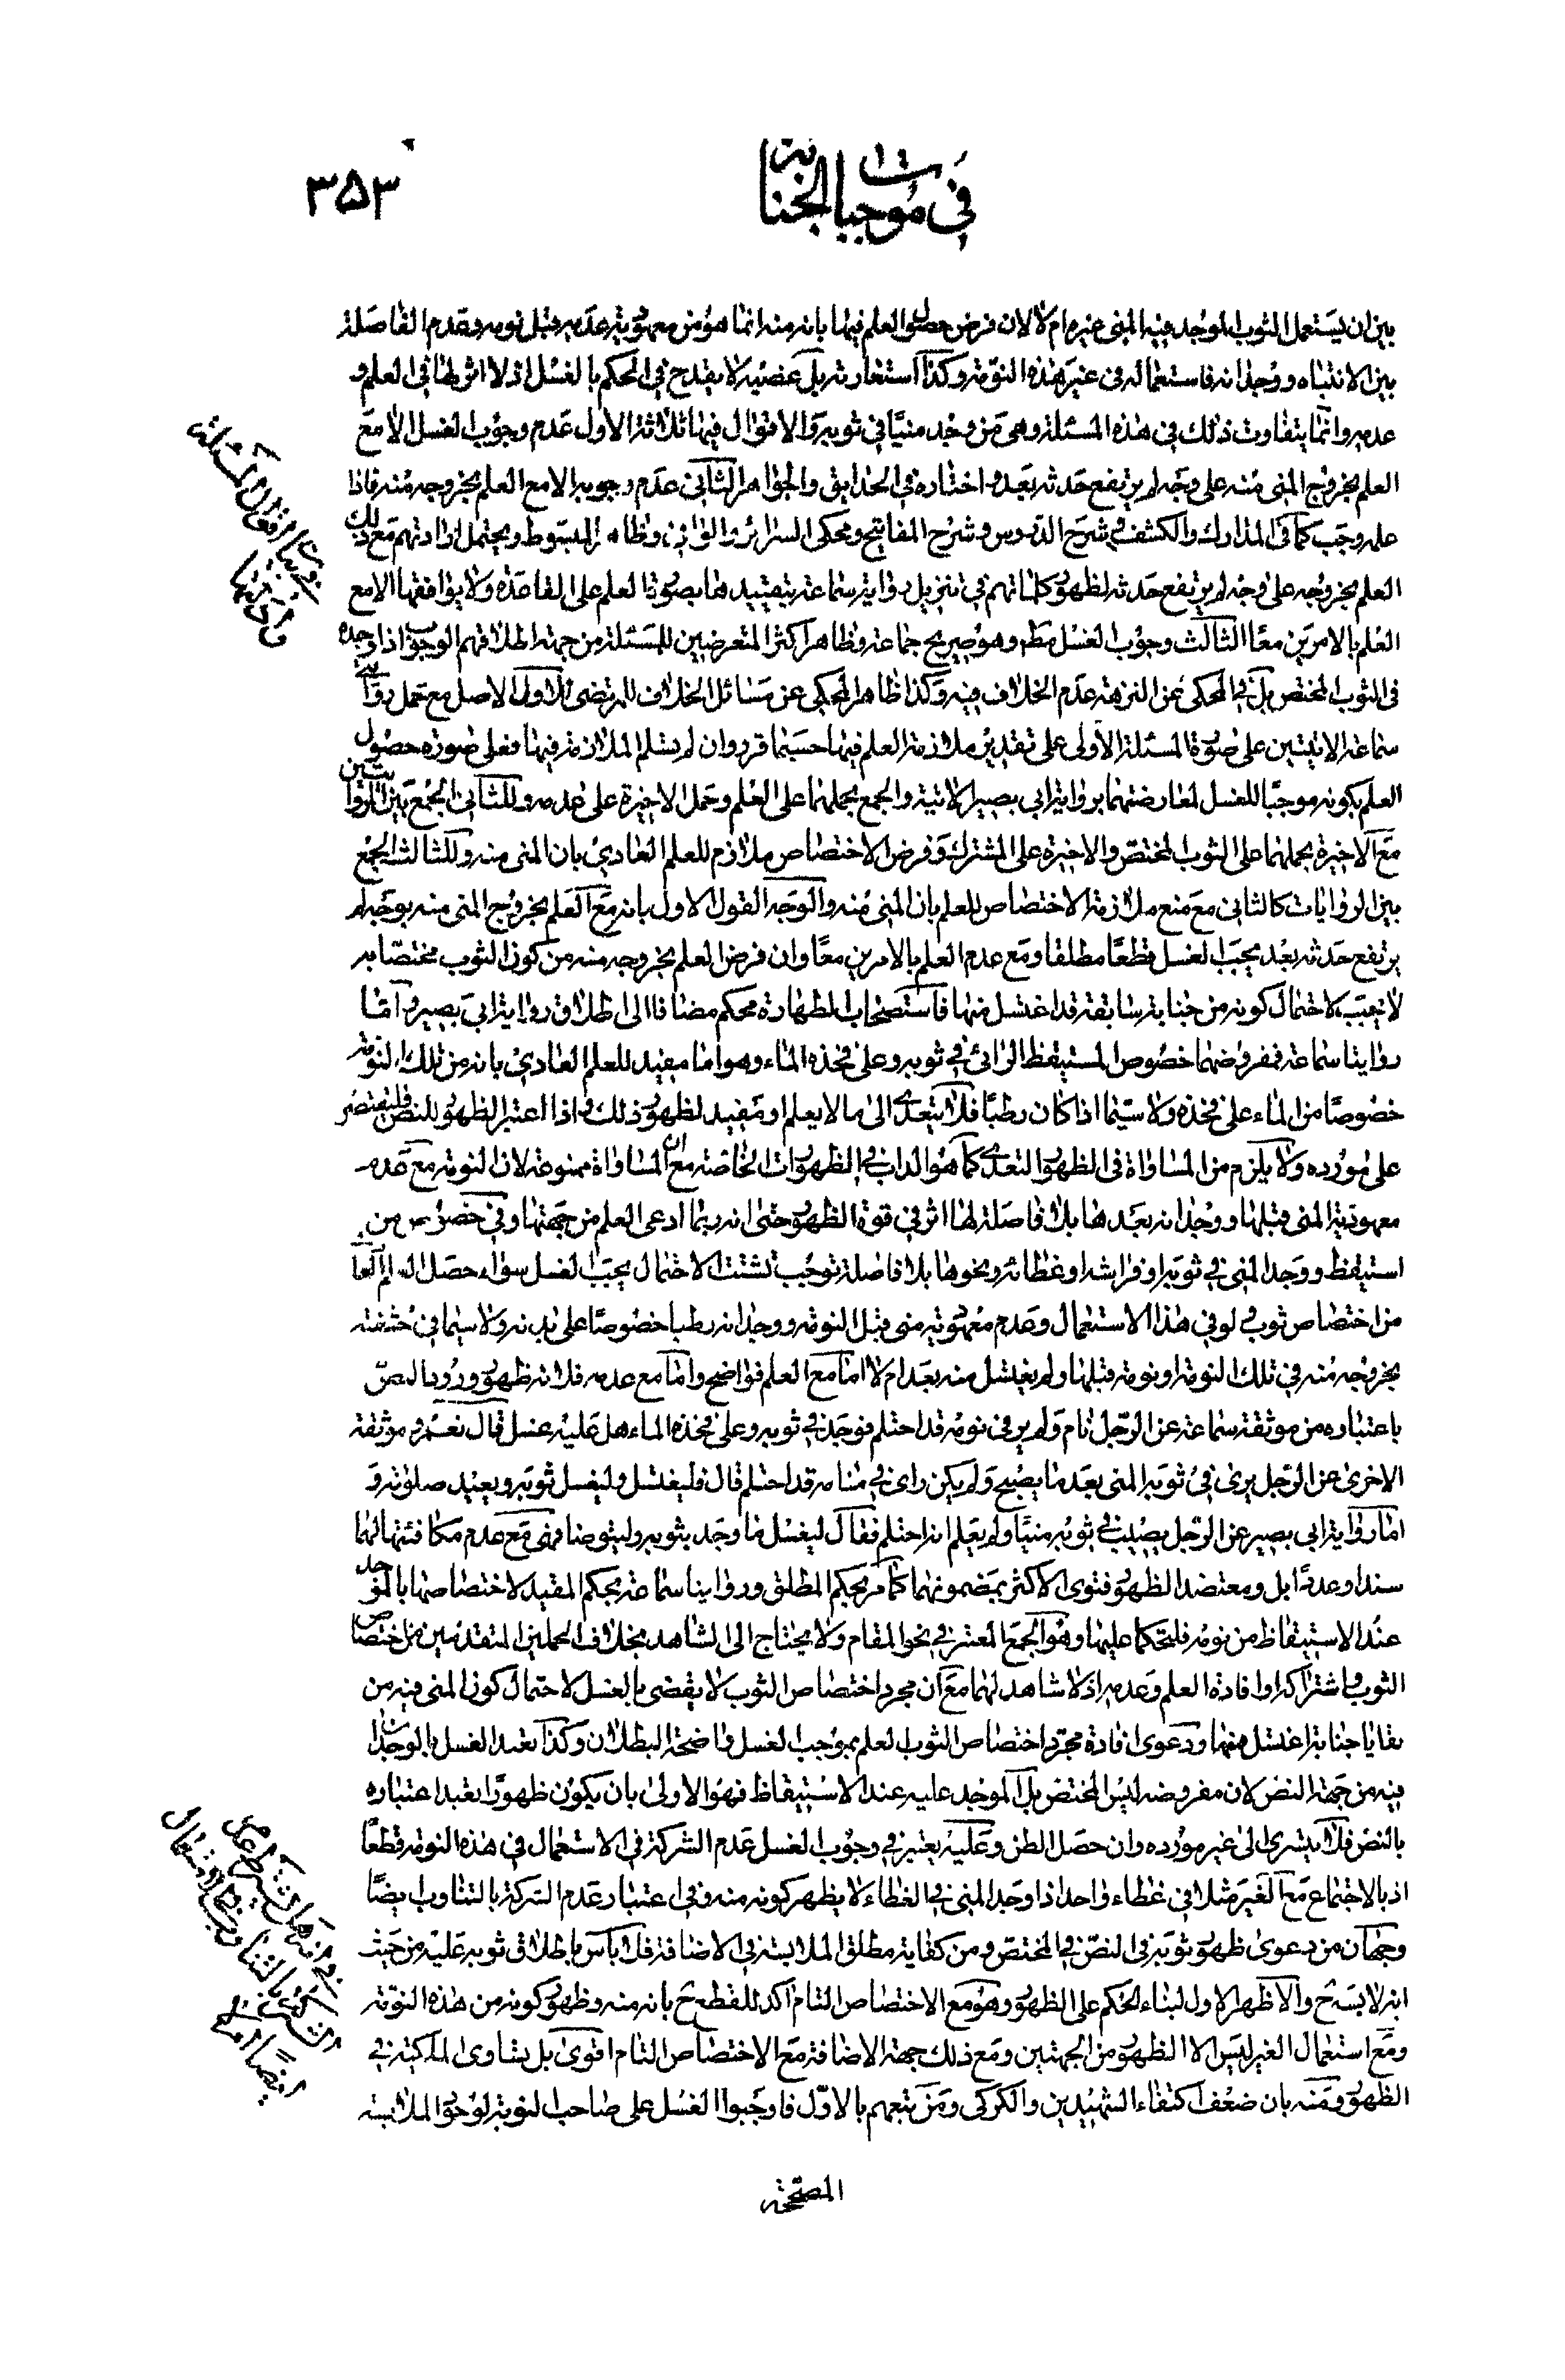 في موجبات الجنابة
٣٥٣
بين ان يستعمل الثوب الموجد فيه المنى غيره ام لا لان فرض حصول العلم فيها بانه منه انما هو من معهودية عدمه قبل نومه وعدم الفاصلة
بين الانتباه ووجدانه فاستعماله في غير هذه النومة وكذا استعارته بل غصبيه لا يقدح في الحكم بالغسل اذ لا اثر لها في العلم و
عدمه وانما يتفاوت ذلك في هذه المسئلة وهي من وجد منيا في ثوبه والاقوال فيها ثلاثة الاول عدم وجوب الغسل الا مع
العلم بخروج المنى منه على وجه لم يرتفع حدثه بعد واختاره في الحدايق والجواهر الثاني عدم وجوبه الا مع العلم بخروجه منه فاذا
علم وجب كما في المدارك والكشف وشرح الدروس وشرح المفاتيح ومحكى السرائر والنوادر وظاهر المبسوط ويحتمل ارادتهم مع ذلك
العلم بخروجه على وجه لم يرتفع حدثه لظهور كلماتهم في تنزيل رواية سماعة بتقييدها بصورة العلم على القاعدة ولا يوافقها الا مع
العلم بالامرين معا الثالث وجوب الغسل مطم وهو صريح جماعة وظاهر اكثر المتعرضين للمسئلة من جهة اطلاقهم الوجوب اذا وجده
في الثوب المختص بل في المحكى عن النزهة عدم الخلاف فيه وكذا ظاهر المحكى عن مسائل الخلاف للمرتضى للاول الاصل مع حمل روايتي
سماعة الاتيتين على صورة المسئلة الاولى على تقدير ملازمة العلم فيها حسبما قرر وان لم يسلم الملازمة فيها فعلى صورة حصول
العلم بكونه موجبا للغسل لمعارضتهما برواية ابي بصير الاتية والجمع بحملهما على العلم وحمل الاخيرة على عدمه وللثاني الجمع بين الروايتين
مع الاخيرة بحملهما على الثوب المختص والاخيرة على المشترك وفرض الاختصاص ملازم للعلم العادي بان المنى منه وللثالث الجمع
بين الروايات كالثاني مع منع ملازمة الاختصاص للعلم بان المنى منه والوجه القول الاول بانه مع العلم بخروج المنى منه بوجه لم
يرتفع حدثه بعد يجب الغسل قطعا مطلقا ومع عدم العلم بالامرين معا وان فرض العلم بخروجه منه من كون الثوب مختصا به
لا يجب لاحتمال كونه من جنابة سابقة قد اغتسل منها فاستصحاب الطهارة محكم مضافا الى اطلاق رواية ابي بصير واما
روايتا سماعة فمفروضهما خصوص المستيقظ الرائي في ثوبه وعلى فخذه الماء وهو اما مفيد للعلم العادي بانه من تلك النومة
خصوصا من الماء على فخذه ولا سيما اذا كان رطبا فلا يتعدى الى ما لا يعلم او مفيد لظهور ذلك و اذا اعتبر الظهور للنص فليقتصر
على مورده ولا يلزم من المساواة في الظهور التعدي كما هو الداب في الظهورات الخاصة مع ان المساواة ممنوعة لان النومة مع عدم
معهودية المنى قبلها ووجدانه بعدها بلا فاصلة لها اثر في قوة الظهور حتى انه ربما ادعى العلم من جهتها وفي خصوص من
استيقظ ووجد المنى في ثوبه او فراشه او غطائه ونحوها بلا فاصلة توجب تشتت الاحتمال يجب الغسل سواء حصل العلم العا
من اختصاص ثوب ولو في هذا الاستعمال وعدم معهودية منى قبل النومة ووجدانه رطبا خصوصا على بدنه ولا سيما في حشفته
بخروجه منه في تلك النومة او نومة قبلها ولم يغتسل منه بعد ام لا اما مع العلم فواضح واما مع عدمه فلانه ظهور ورد النص
باعتباره من موثقة سماعة عن الرجل نام ولم ير في نومه قد احتلم فوجد في ثوبه وعلى فخذه الماء هل عليه غسل قال نعم وموثقة
الاخرى عن الرجل يرى في ثوبه المنى بعد ما يصبح ولم يكن راى في منامه قد احتلم قال فليغتسل وليغسل ثوبه ويعيد صلوته و
اما رواية ابي بصير عن الرجل يصيب في ثوبه منيا ولم يعلم انه احتلم فقال ليغسل ما وجد بثوبه وليتوضا فهي مع عدم مكافئتها لهما
سندا وعددا بل ومعتضد الظهور فتوى الاكثر بمضمونهما كما مر بحكم المطلق وروايتا سماعة بحكم المقيد لاختصاصها بالموجد
عند الاستيقاظ من نومه فلتحكما عليها وهو الجمع المعتبر في نحو المقام ولا يحتاج الى الشاهد بخلاف الحملين المتقدمين من اختصاص
الثوب واشتراكه او افادة العلم وعدمه اذ لا شاهد لهما مع ان مجرد اختصاص الثوب لا يقضى بالغسل لاحتمال كون المنى فيه من
بقايا جنابة اغتسل منها ودعوى افادة مجرد اختصاص الثوب لعلم بموجب الغسل واضحة البطلان وكذا تعبد الغسل بالوجدان
فيه من جهة النص لان مفروضه ليس المختص بل الموجد عليه عند الاستيقاظ فهو الاولى بان يكون ظهورا تعبد اعتباره
بالنص فلا يسرى الى غير مورده وان حصل الظن وعليه يعتبر في وجوب الغسل عدم الشركة في الاستعمال في هذه النومة قطعا
اذ بالاجتماع مع الغير مثلا في غطاء واحد اذا وجد المنى في الغطاء لا يظهر كونه منه وفي اعتبار عدم الشركة بالتناوب ايضا
وجهان من دعوى ظهور ثوبه في النص في المختص ومن كفاية مطلق الملابسة في الاضافة فلا باس باطلاق ثوبه عليه من حيث
انه لابسه ح والاظهر الاول لبناء الحكم على الظهور وهو مع الاختصاص التام اكد للقطع ح بانه منه وظهور كونه من هذه النومة
ومع استعمال الغير ليس الا الظهور من الجهتين ومع ذلك جهة الاضافة مع الاختصاص التام اقوى بل يتساوى الملكية في
الظهور ومنه بان ضعف اكتفاء الشهيدين والكركى ومن تبعهم بالاول فاوجبوا الغسل على صاحب النوبة لوجود الملابسة
المصححة